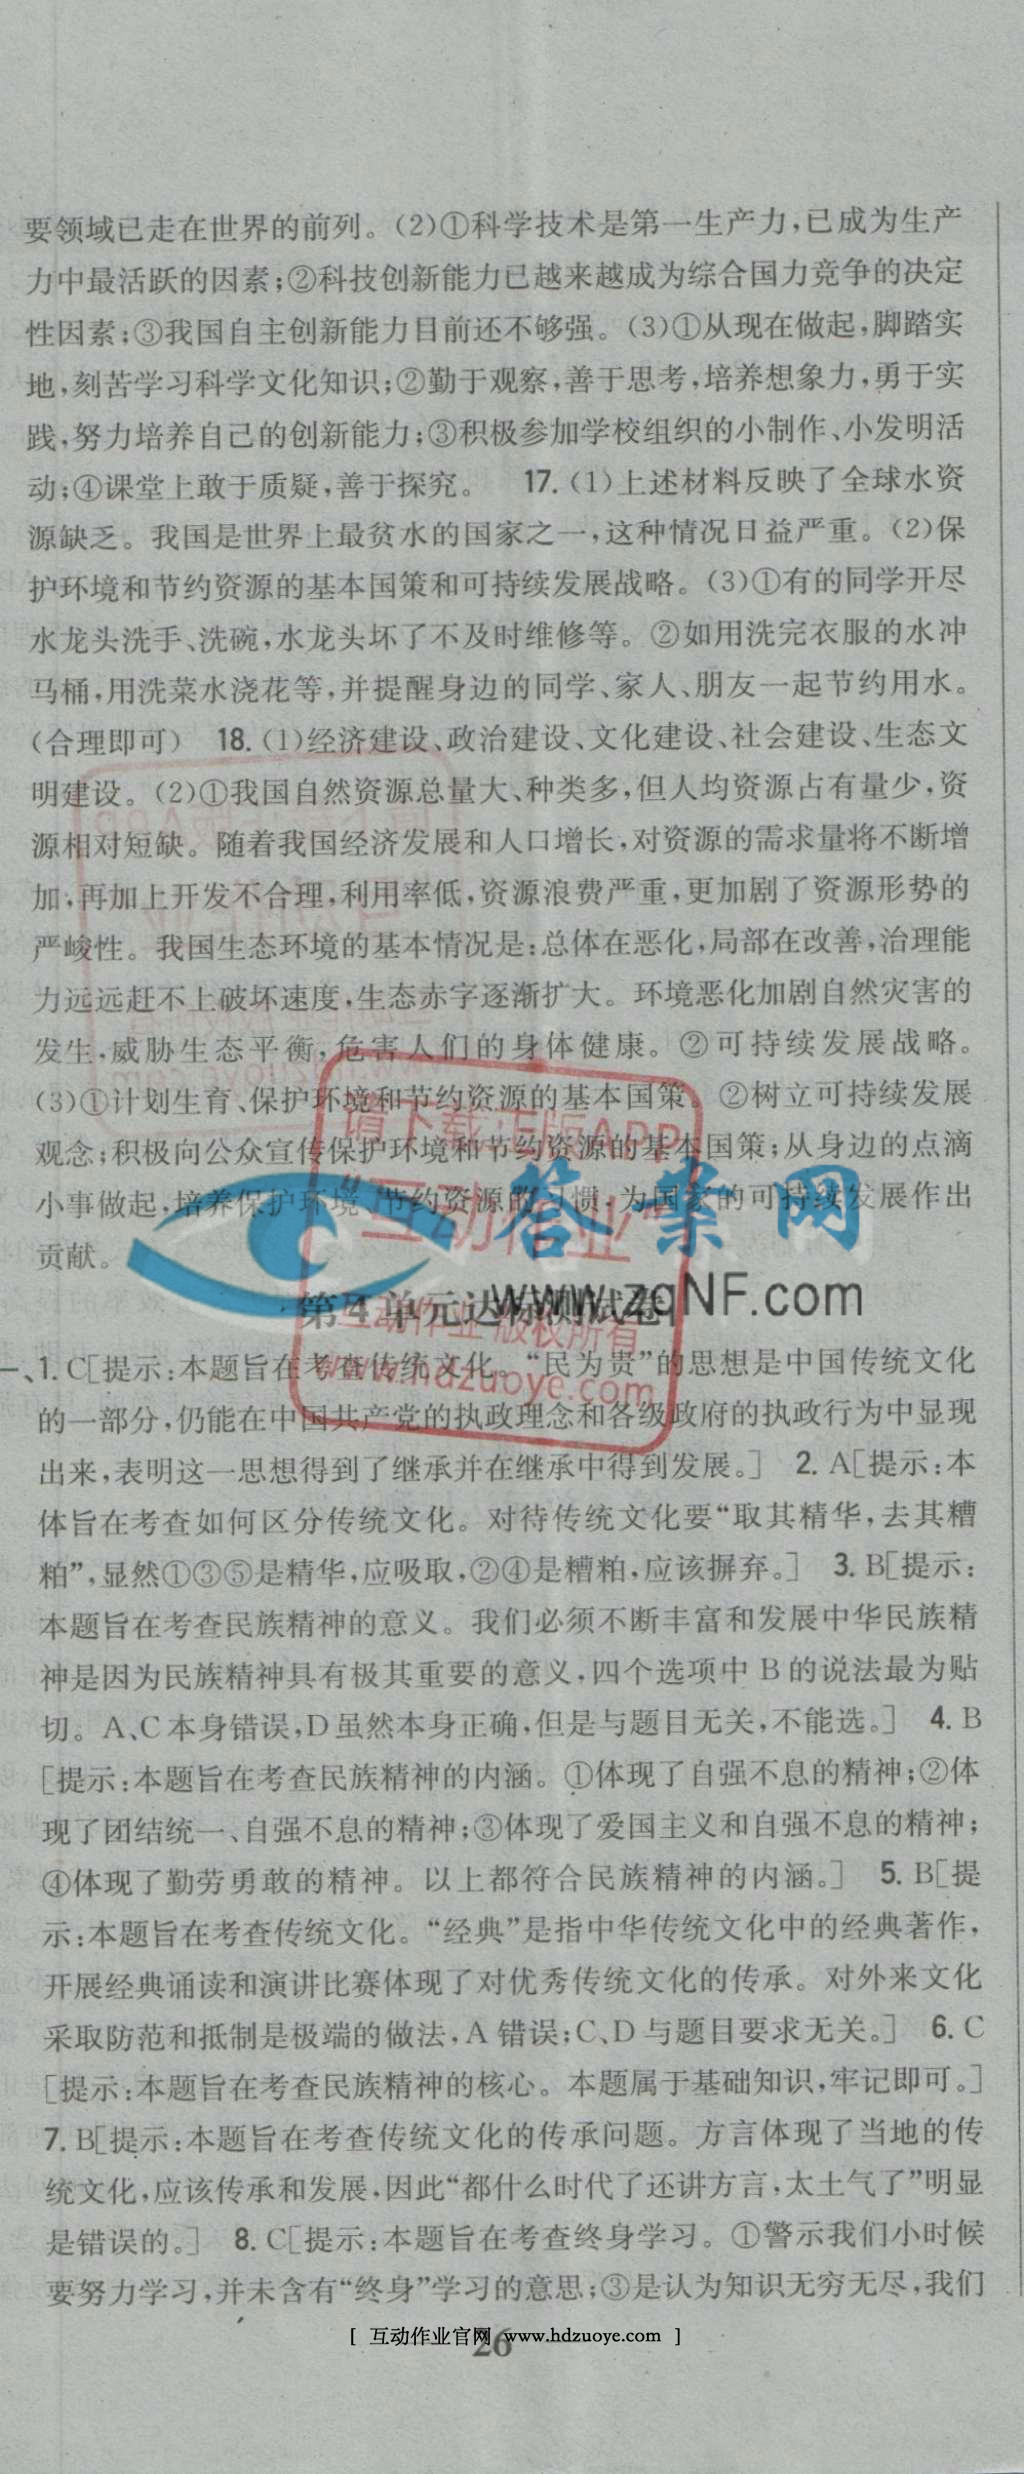 要领域已走在世界的前列。(2)①科学技术是第一生产力,已成为生产
力中最活跃的因素;②科技创新能力已越来越成为综合国力竞争的决定
性因素;③我国自主创新能力目前还不够强。(3)①从现在做起,脚踏实
地,刻苦学习科学文化知识;②勤于观察,善于思考,培养想象力,勇于实
践,努力培养自己的创新能力;③积极参加学校组织的小制作、小发明活
动;④课堂上敢于质疑,善于探究。 17.(1)上述材料反映了全球水资
源缺乏。我国是世界上最贫水的国家之一,这种情况日益严重。(2)保
护环境和节约资源的基本国策和可持续发展战略。(3)①有的同学开尽
水龙头洗手、洗碗,水龙头坏了不及时维修等。②如用洗完衣服的水冲
马桶,用洗菜水浇花等,并提醒身边的同学、家人、朋友一起节约用水。
(合理即可) 18.(1)经济建设、政治建设、文化建设、社会建设、生态文
明建设。(2)①我国自然资源总量大、种类多,但人均资源占有量少,资
源相对短缺。随着我国经济发展和人口增长,对资源的需求量将不断增
加;再加上开发不合理,利用率低,资源浪费严重,更加剧了资源形势的
严峻性。我国生态环境的基本情况是:总体在恶化,局部在改善,治理能
力远远赶不上破坏速度,生态赤字逐渐扩大。环境恶化加剧自然灾害的
发生,威胁生态平衡,危害人们的身体健康。②可持续发展战略。
(3)①计划生育、保护环境和节约资源的基本国策。②树立可持续发展
观念;积极向公众宣传保护环境和节约资源的基本国策;从身边的点滴
小事做起,培养保护环境、节约资源的习惯,为国家的可持续发展作出
贡献。
请下载出版APP
“互动作业”
答案网
www.zqNF.com
互动作业 版权所有
www.hdzuoye.com
第4单元达标测试卷
一、1. C[提示:本题旨在考查传统文化。“民为贵”的思想是中国传统文化
的一部分,仍能在中国共产党的执政理念和各级政府的执政行为中显现
出来,表明这一思想得到了继承并在继承中得到发展。] 2. A[提示:本
体旨在考查如何区分传统文化。对待传统文化要“取其精华,去其糟
粕”,显然①③⑤是精华,应吸取,②④是糟粕,应该摒弃。] 3. B[提示:
本题旨在考查民族精神的意义。我们必须不断丰富和发展中华民族精
神是因为民族精神具有极其重要的意义,四个选项中 B 的说法最为贴
切。A、C本身错误,D虽然本身正确,但是与题目无关,不能选。] 4. B
[提示:本题旨在考查民族精神的内涵。①体现了自强不息的精神;②体
现了团结统一、自强不息的精神;③体现了爱国主义和自强不息的精神;
④体现了勤劳勇敢的精神。以上都符合民族精神的内涵。] 5. B[提
示:本题旨在考查传统文化。“经典”是指中华传统文化中的经典著作,
开展经典诵读和演讲比赛体现了对优秀传统文化的传承。对外来文化
采取防范和抵制是极端的做法,A 错误;C、D与题目要求无关。] 6. C
[提示:本题旨在考查民族精神的核心。本题属于基础知识,牢记即可。]
7. B[提示:本题旨在考查传统文化的传承问题。方言体现了当地的传
统文化,应该传承和发展,因此“都什么时代了还讲方言,太土气了”明显
是错误的。] 8. C[提示:本题旨在考查终身学习。①警示我们小时候
要努力学习,并未含有“终身”学习的意思;③是认为知识无穷无尽,我们
[ 互动作业官网 www.hdzuoye.com ]
26